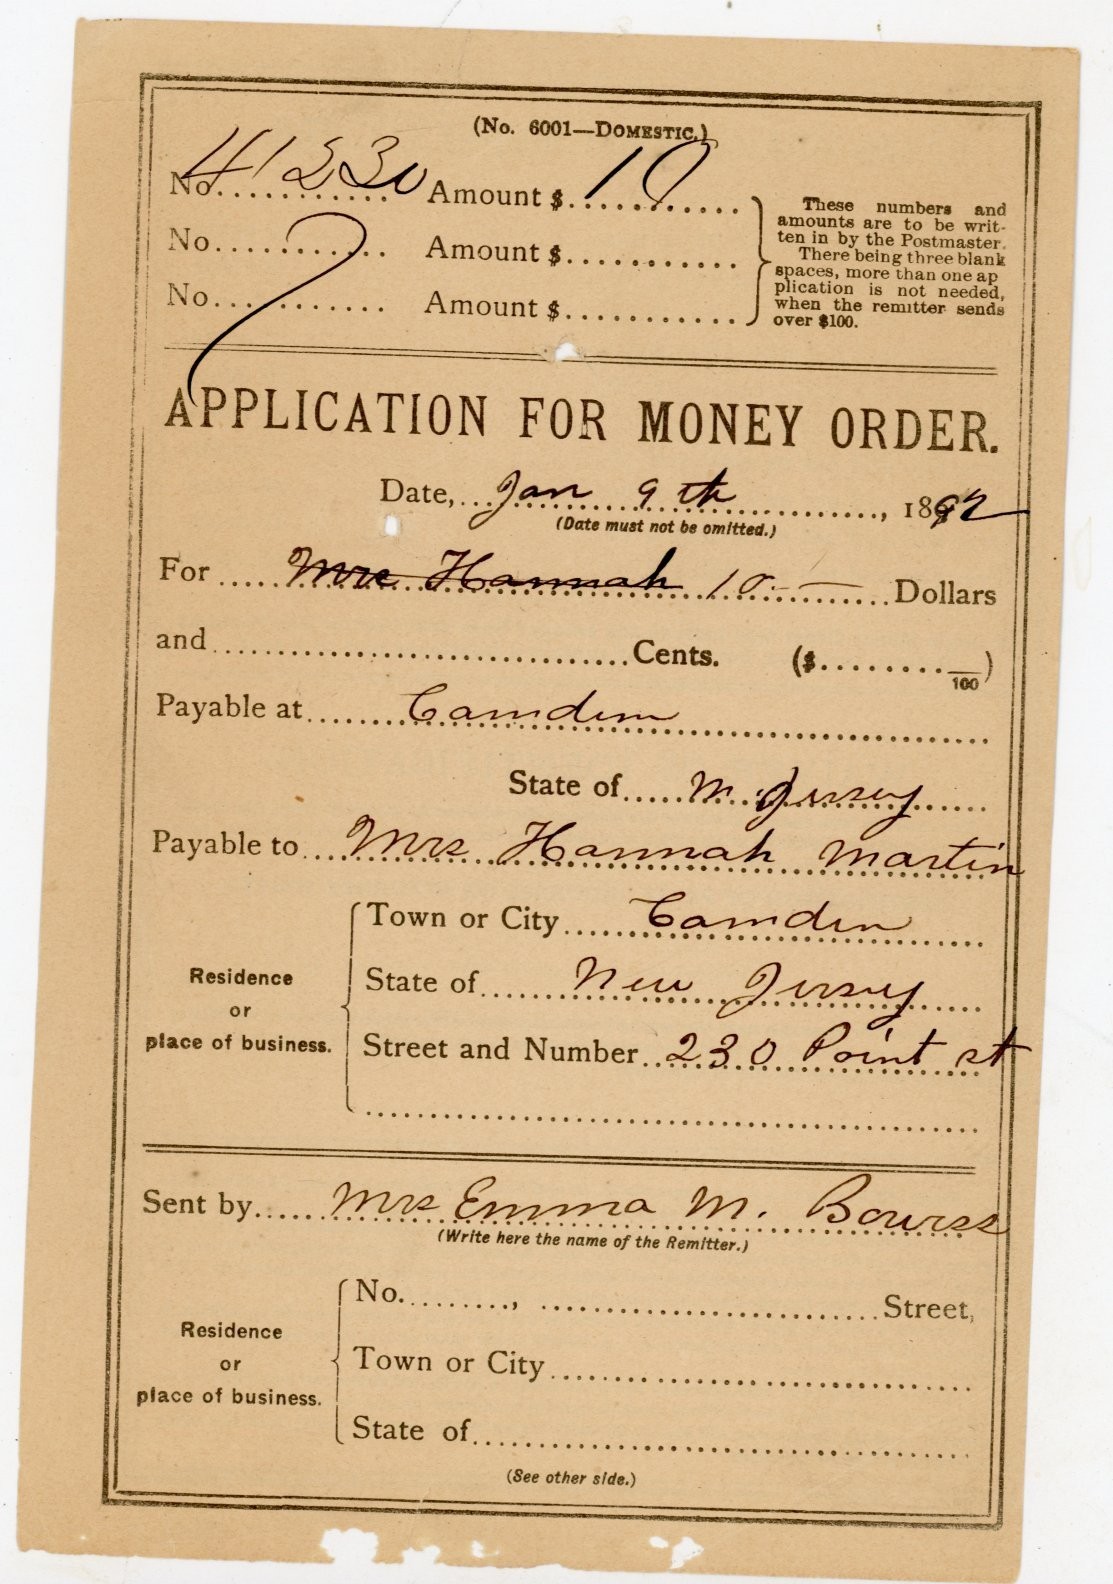 (No. 6001—DOMESTIC.)
No. 41230 Amount $ 10
No. Amount $
No. Amount $
These numbers and
amounts are to be writ-
ten in by the Postmaster.
There being three blank
spaces, more than one ap
plication is not needed,
when the remitter sends
over $100.
APPLICATION FOR MONEY ORDER.
Date, Jan 9th, 1892
(Date must not be omitted.)
For Mrs Hannah 10 — Dollars
and Cents. ($ /100)
Payable at Camden
State of N. Jersey
Payable to Mrs Hannah Martin
Residence
or
place of business.
Town or City Camden
State of New Jersey
Street and Number 230 Point st
Sent by Mrs Emma M.
(Write here the name of the Remitter.)
Residence
or
place of business.
No. , Street,
Town or City
State of
(See other side.)